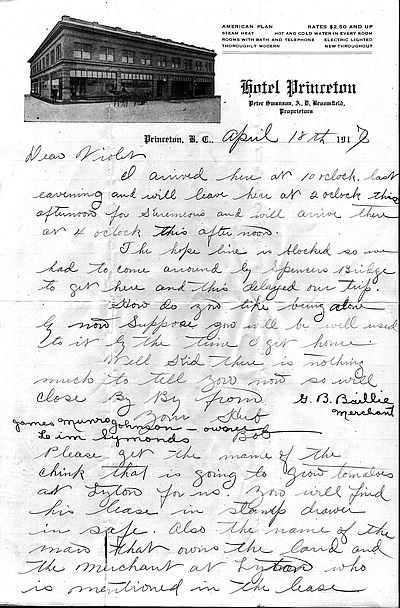 AMERICAN PLAN RATES $2.50 AND UP
STEAM HEAT HOT AND COLD WATER IN EVERY ROOM
ROOMS WITH BATH AND TELEPHONE ELECTRIC LIGHTED
THOROUGHLY MODERN NEW THROUGHOUT
Hotel Princeton
Peter Swanson, A. D. Broomfield,
Proprietors
Princeton, B. C. April 18th 1917
Dear Violet
I arrived here at 10 oclock last
eavening and will leave here at 2 oclock this
afternoon for and will arrive there
at 4 oclock this afternoon.
The hope line is blocked so we
had to come arround by Spences Bridge
to get here and this delayed our trip.
How do you like being alone
by now Suppose you will be well used
to it by the time I get home.
Well Kid there is nothing
much to tell you now so will
close By By from
G. B. Baillie
Merchant
Your Hub
Bob
James Munro Johnson - owner
Lim Symonds
Please get the name of the
chink that is going to grow tomatoes
at Lyton for us. You will find
his lease in stamp drawer
in safe. Also the name of the
man that owns the land and
the merchant at Lyton who
is mentioned in the lease